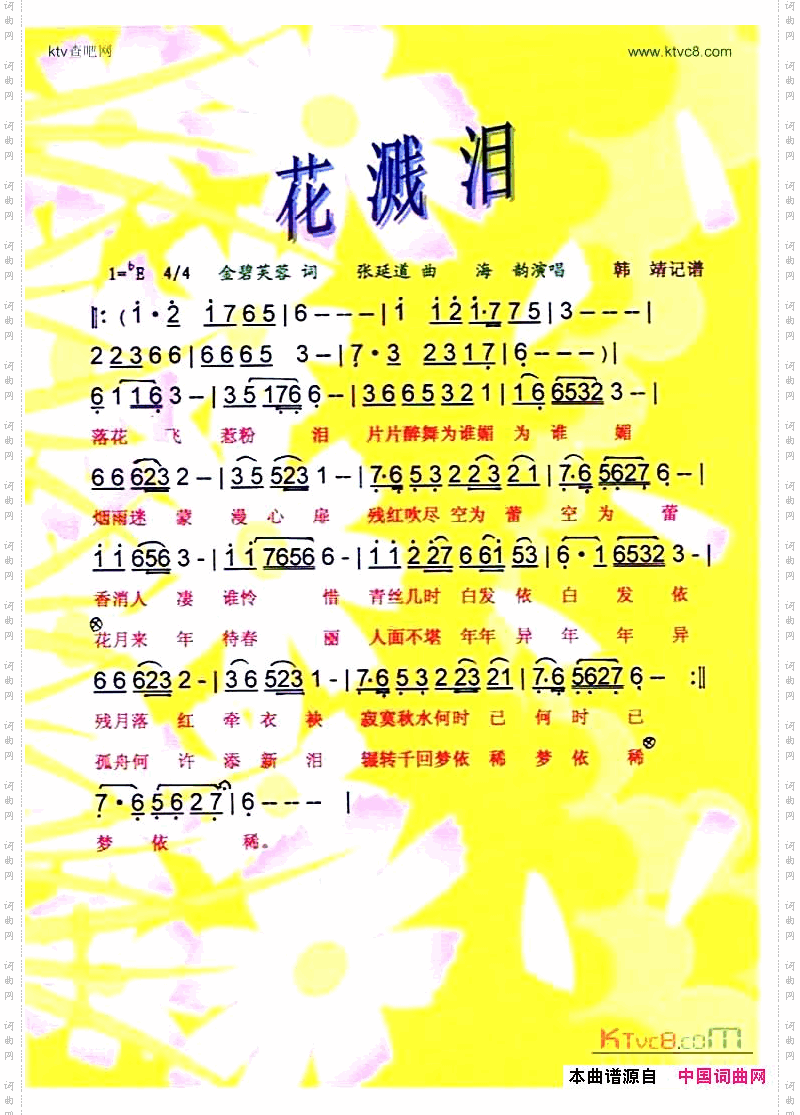 ktv查吧网 www.ktvc8.com
花溅泪
1=ᵇE 4/4 金碧芙蓉 词 张廷道 曲 海 韵演唱 韩 靖记谱
‖:(i̇·2̇ i̇765|6---|i̇ i̇2̇i̇·775|3---|
2 2 2 3 6 6|6 6 6 5 3--|7·3 2 3 1 7|6---)|
6 1 1 6 3--|3 5 176 6--|3 6 6 5 3 2 1|1 6 6532 3--|
落花 飞 惹粉 泪 片片醉舞为谁媚 为 谁 媚
6 6 623 2--|3 5 523 1--|7·6 5 3 2 2 3 2 1|7·6 5627 6--|
烟雨迷 蒙 漫 心 扉 残红吹尽 空为 蕾 空 为 蕾
i̇ i̇ 656 3-|i̇ i̇ 7656 6-|i̇ i̇ 2̇ 2̇7 6 6i̇ 53|6·1 6532 3-|
香消人 凄 谁怜 惜 青丝几时 白发 依 白 发 依
花月来 年 待春 丽 人面不堪 年年 异 年 年 异
6 6 623 2-|3 6 523 1-|7·6 5 3 2 23 21|7·6 5627 6- :‖
残月落 红 牵 衣 袂 寂寞秋水何时 已 何 时 已
孤舟何 许 添 新 泪 辗转千回梦依 稀 梦 依 稀
7·6 5 6 2 7|6--- |
梦 依 稀。
KTvc8.com
本曲谱源自 中国词曲网